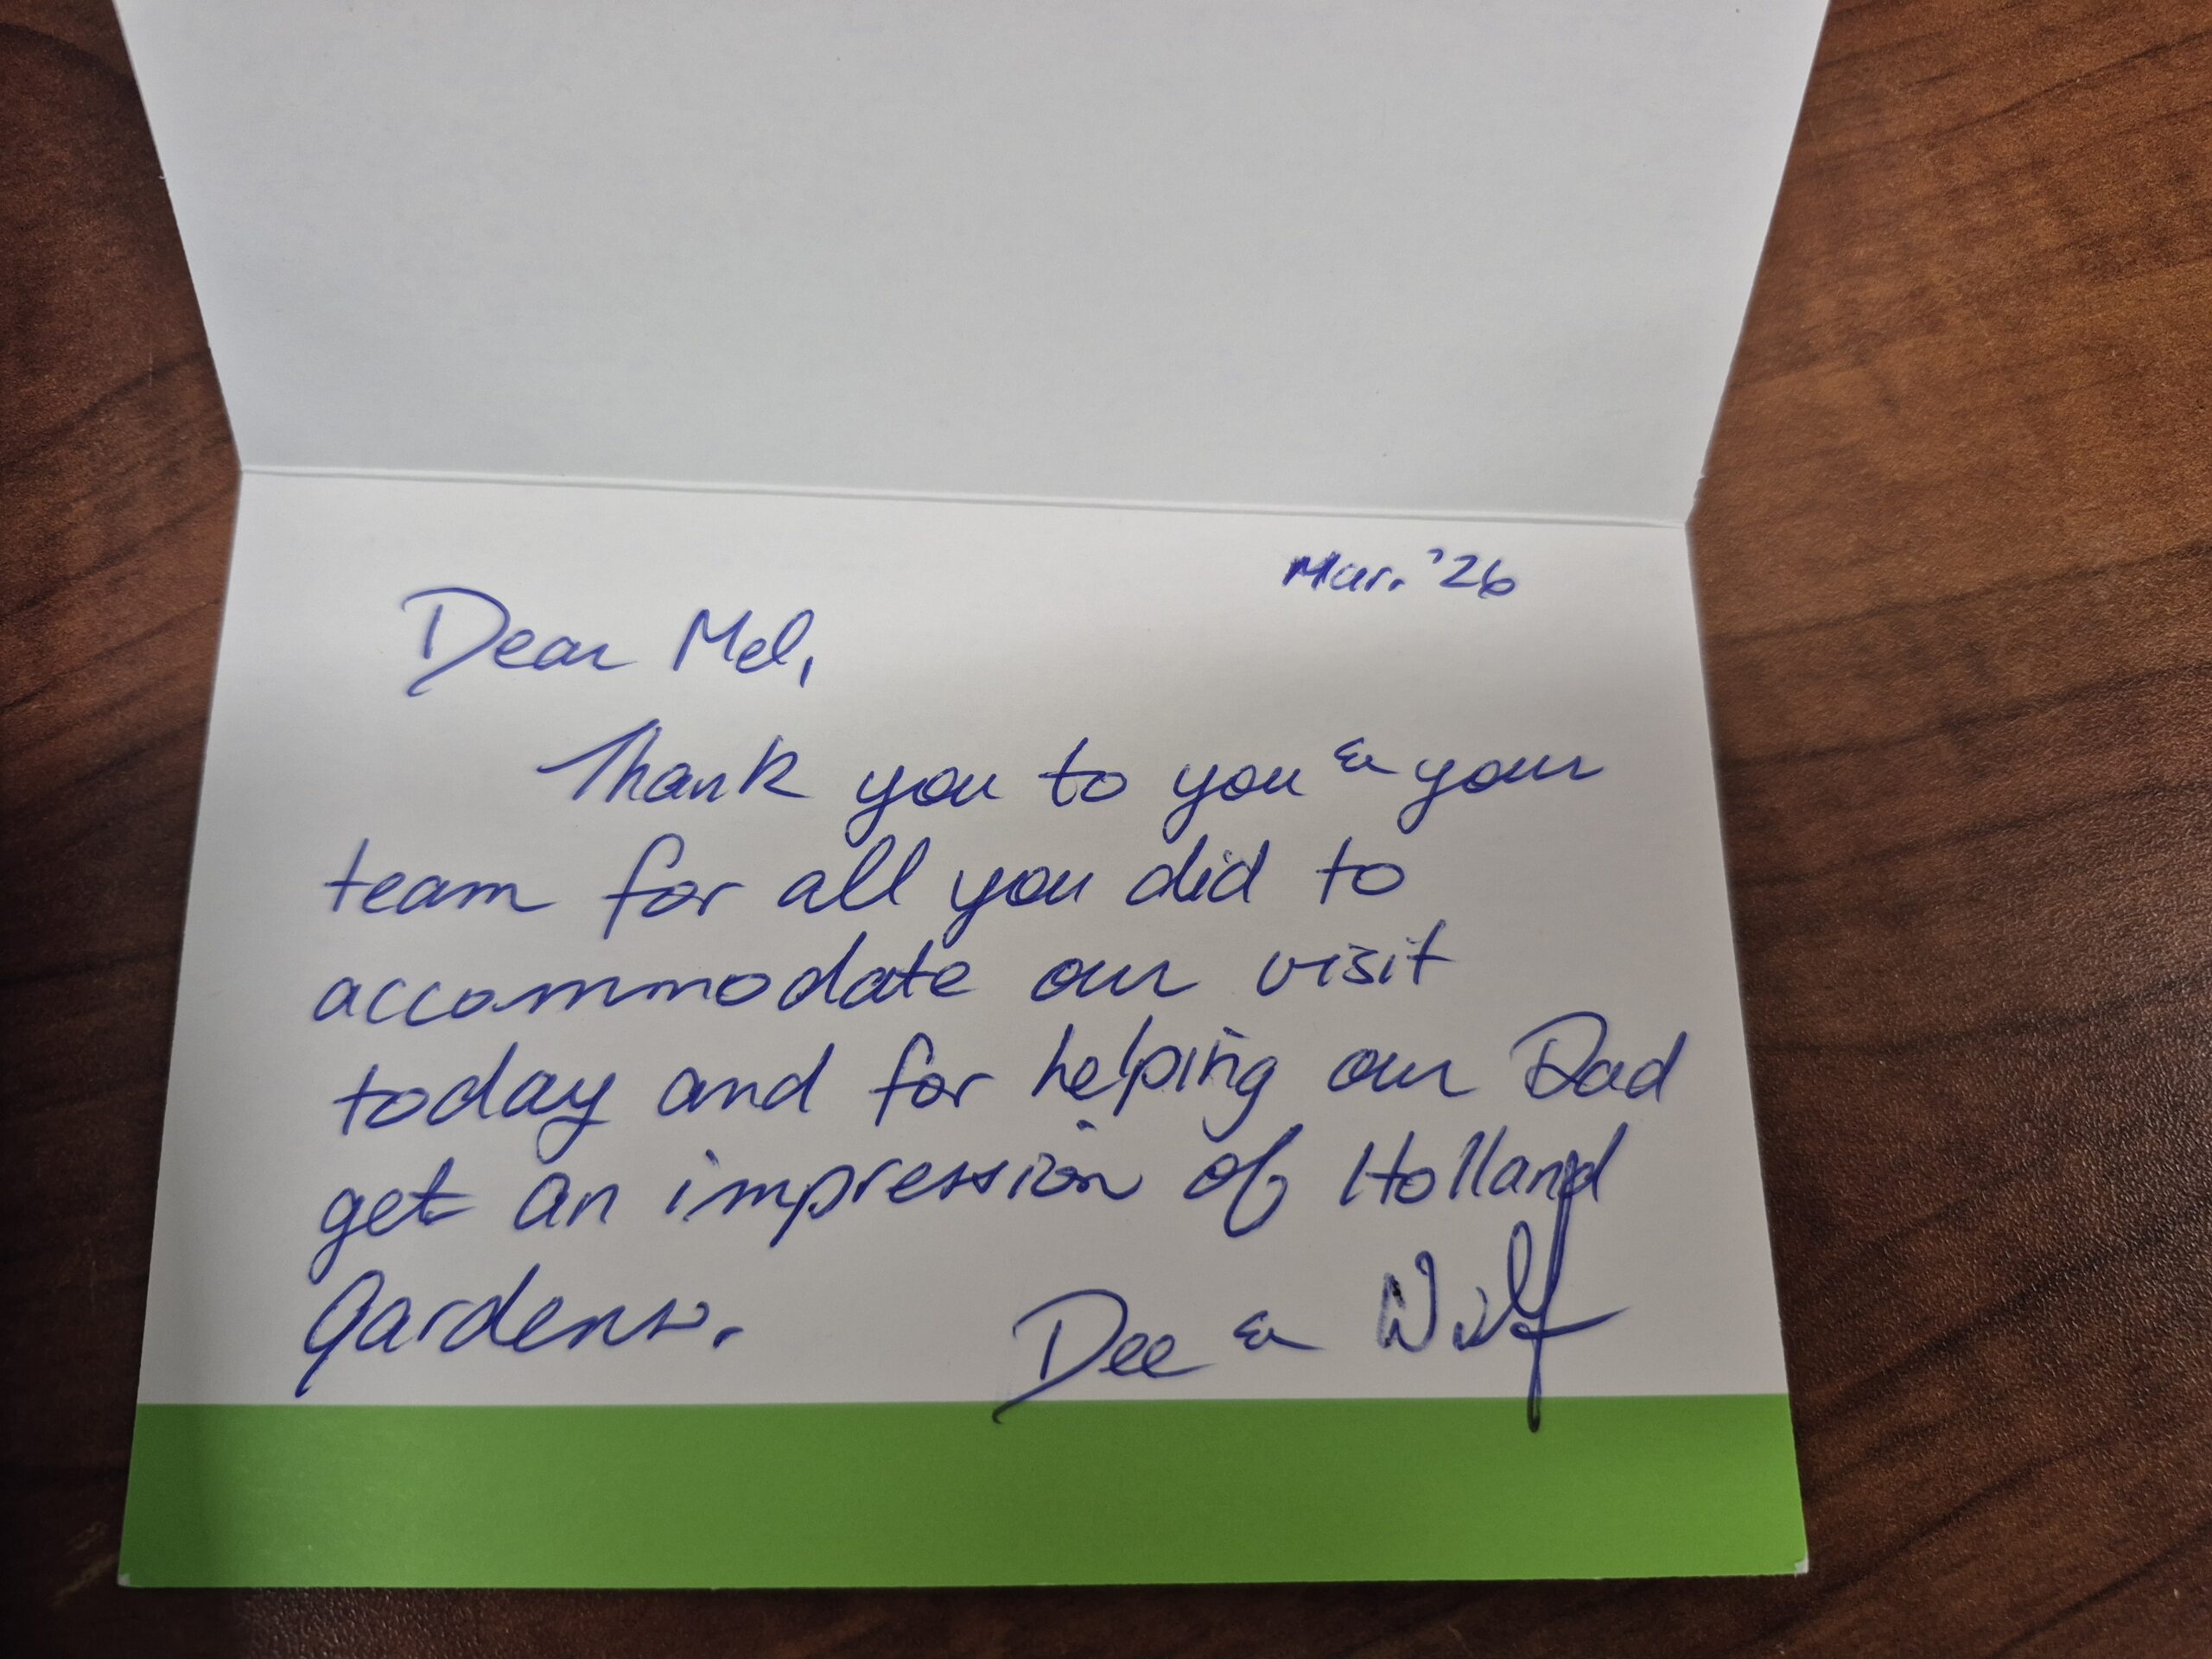 Mar. '26
Dear Mel,
Thank you to you & your
team for all you did to
accommodate our visit
today and for helping our Dad
get an impression of Holland
Gardens.
Dee & Wilf